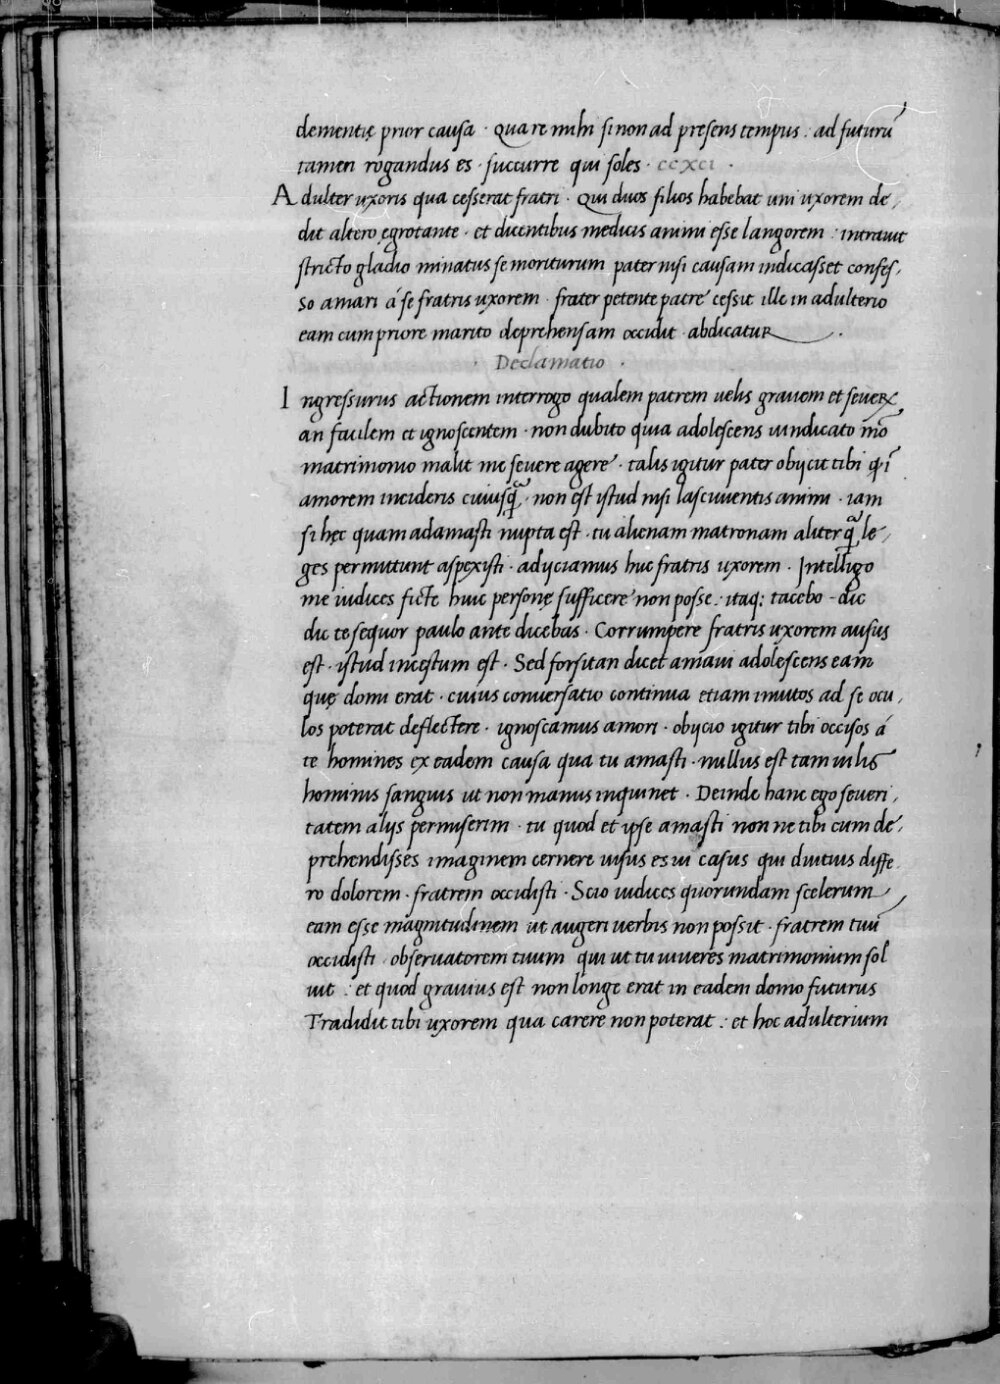 dementię prior causa · Qua re mihi si non ad presens tempus : ad futurū
tamen rogandus es · succurre qui soles · ccxci ·
Adulter uxoris qua cesserat fratri · Qui duos filios habebat uni uxorem de,
dit altero ęgrotante · et dicentibus medicis animi esse langorem : intrauit
stricto gladio minatus se moriturum pater nisi causam indicasset confes,
so amari á se fratris uxorem · frater petente patre cessit ille in adulterio
eam cum priore marito deprehensam occidit · abdicatur ·
· Declamatio ·
Ingressurus actionem interrogo qualem patrem uelis grauem et seuerum
an facilem et ignoscentem · non dubito quia adolescens uindicato mō
matrimonio malit me seuere agere · talis igitur pater obijcit tibi qī
amorem incideris cuiusꝗ̄ · non est istud nisi lasciuientis animi · iam
si hęc quam adamasti nupta est · tu alienam matronam aliter ꝗ̄ le,
ges permittunt aspexisti · adijciamus huc fratris uxorem · Intelligo
me iudices fictę huic personę sufficere non posse · itaq; tacebo - dic
dic te sequor paulo ante dicebas · Corrumpere fratris uxorem ausus
est · istud incestum est · Sed forsitan dicet amaui adolescens eam
quę domi erat · cuius conuersatio continua etiam inuitos ad se ocu,
los poterat deflectere · ignoscamus amori · obijcio igitur tibi occisos á
te homines ex eadem causa qua tu amasti · nullus est tam uilis
hominis sanguis ut non manus inquinet · Deinde hanc ego seueri,
tatem alijs permiserim · tu quod et ipse amasti non ne tibi cum de,
prehendisses imaginem cernere uisus es tui casus qui diutius diffe
ro dolorem · fratrem occidisti · Scio iudices quorundam scelerum
eam esse magnitudinem ut augeri uerbis non possit · fratrem tuū
occidisti · obseruatorem tuum qui ut tu uiueres matrimonium sol
uit : et quod grauius est non longe erat in eadem domo futurus
Tradidit tibi uxorem qua carere non poterat : et hoc adulterium